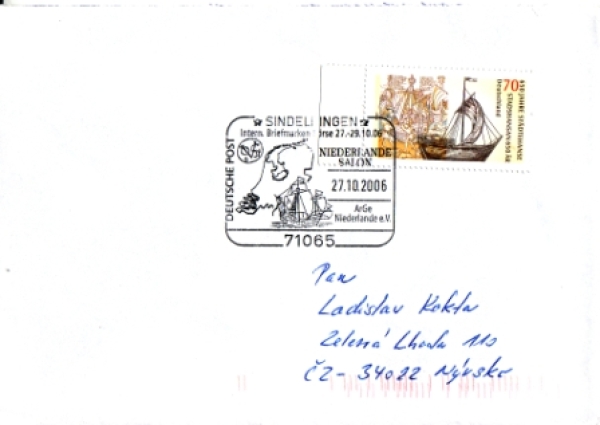 70
650 JAHRE STÄDTEHANSE
STADSHANSAN 650 ÅR
Deutschland
SINDELFINGEN
Intern. Briefmarken Börse 27.-29.10.06
DEUTSCHE POST
NIEDERLANDE
SALON
27.10.2006
ArGe
Niederlande e.V.
71065
Pan
Ladislav Kokta
Zelená Lhota 110
ČZ- 34022 Nýrsko